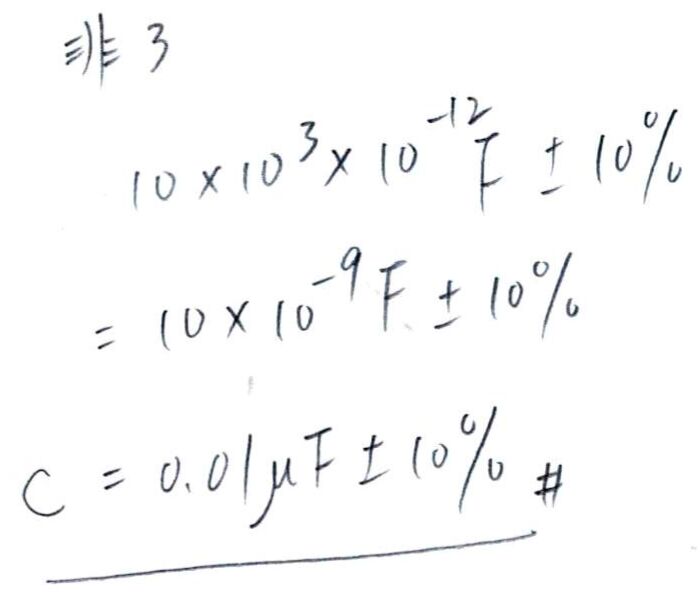 非 3
10 × 10³ × 10⁻¹² F ± 10%
= 10 × 10⁻⁹ F ± 10%
C = 0.01μF ± 10% #